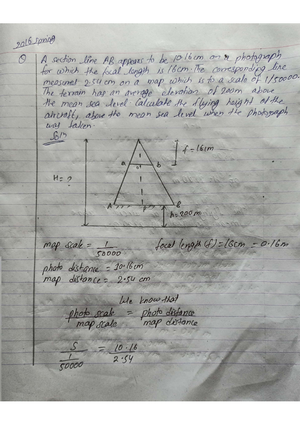 2016 spring
Q A section line AB appears to be 10.16cm on a photograph
for which the focal length is 16cm. The corresponding line
measures 2.54 cm on a map which is to a scale of 1/50000.
The terrain has an average elevation of 200m above
the mean sea level. Calculate the flying height of the
aircraft, above the mean sea level when the photograph
was taken.
Solⁿ
f = 16cm
a b
H = ?
A B
h = 200m
map scale = 1/50000 focal length (f) = 16cm = 0.16m
photo distance = 10.16cm
map distance = 2.54 cm
We know that
photo scale / map scale = photo distance / map distance
S / (1/50000) = 10.16 / 2.54